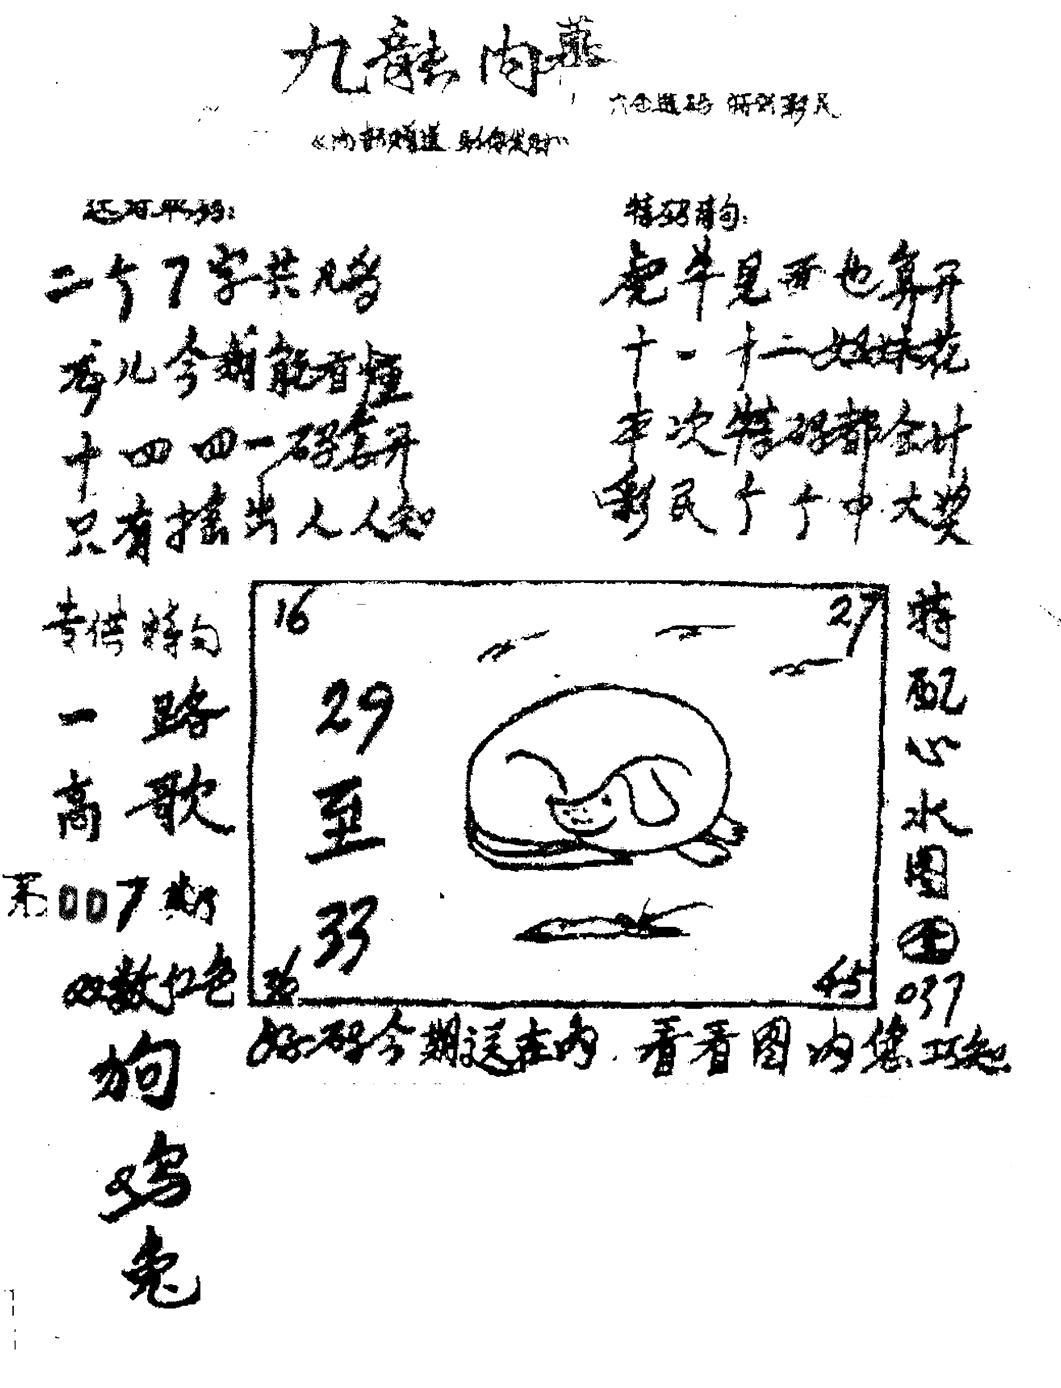 九龍内幕
六合透码 特供彩民
《内部赠送 助你发财》
特码诗句:
二个7字共几鸡
哥儿今期能看懂
十四四一码套开
只有摇出人人知
虎羊见面也算开
十一十二姐妹花
本次特码都会计
彩民个个中大奖
专供特句
一路
高歌
第007期
双数红色
狗
鸡
兔
16
27
29
至
33
36
45
特配心水图
037
好码今期送在内 看看图内您巧知